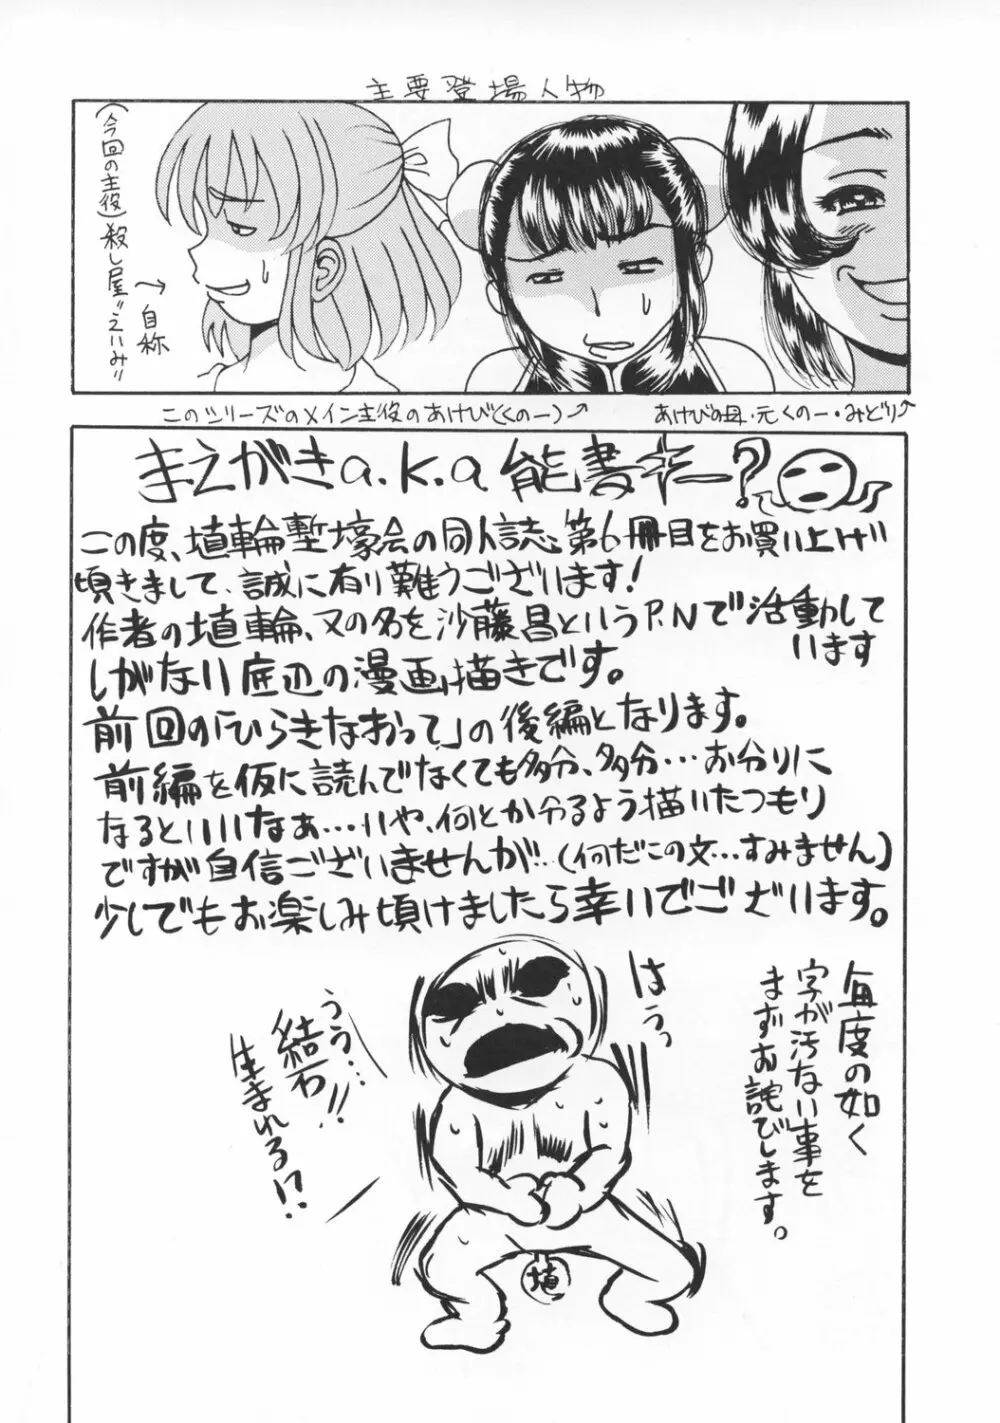 主要登場人物
(今回の主役)殺し屋〝えいみ〟
→自称
このシリーズのメイン主役のあけび(くの一)↗
あけびの母・元くの一・みどり↗
まえがきa.k.a能書キー?
この度、埴輪塹壕会の同人誌、第6冊目をお買い上げ
頃きまして、誠に有り難うございます!
作者の埴輪、又の名を沙藤昌というP.Nで活動して
います
しがない底辺の漫画描きです。
前回の「ひらきなおって」の後編となります。
前編を仮に読んでなくても多分、多分…お分りに
なるといいなぁ…いや、何とか分るよう描いたつもり
ですが自信ございませんが…(何だこの文…すみません)
少しでもお楽しみ頃けましたら幸いでございます。
毎度の如く
字が汚ない事を
まずお詫びします。
はうっ
うう…
結石!!
生まれる!?
埴